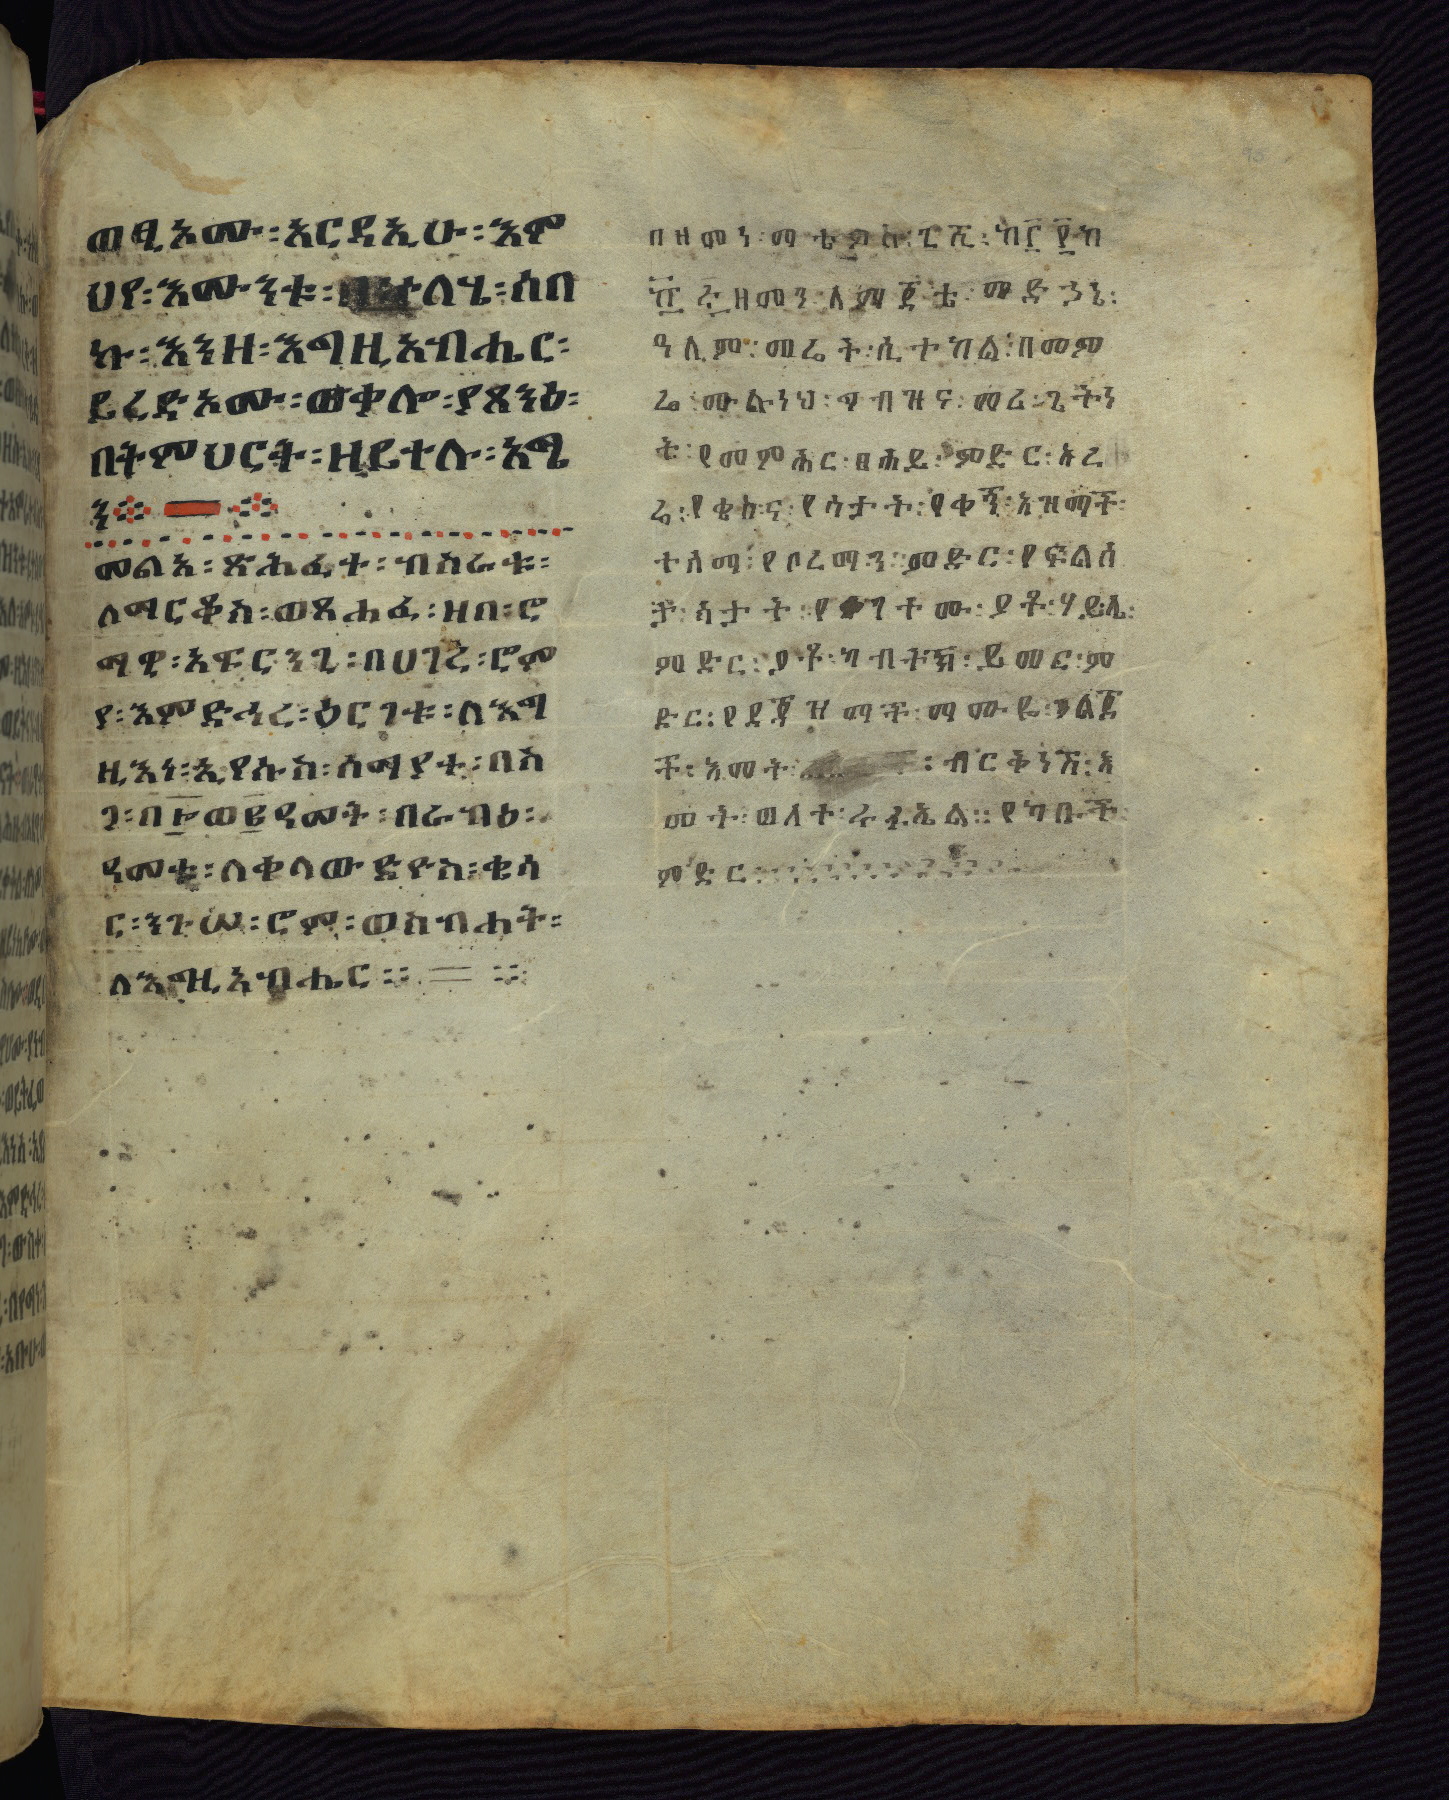 ወፂአሙ፡አርዳኢሁ፡እም
ህየ፡እሙንቱ፡ ተለሄ፡ሰበ
ኩ፡እንዘ፡እግዚአብሔር፡
ይረድአሙ፡ወቃሎ፡ያጸንዕ፡
በትምህርት፡ዘይተሉ፡አሜ
ን
መልአ፡ጽሕፈተ፡ብስራቱ፡
ለማርቆስ፡ወጸሐፈ፡ዘበ፡ሮ
ማዊ፡አፍርንጊ፡በሀገረ፡ሮም
ያ፡እምድኅረ፡ዕርገቱ፡ለእግ
ዚእነ፡ኢየሱስ፡ሰማያተ፡በአ
፡በ፲ወ፪ዓመት፡በራብዕ፡
ዓመቱ፡ለቀላውድዮስ፡ቄሳ
ር፡ንጉሠ፡ሮም፡ወስብሐት፡
ለእግዚአብሔር።
በዘመን፡ማቴዎስ፡
ዘመን፡ መድኃኔ፡
ዓለም፡መሬት፡ሲተከል፡በመም
ሬ፡ ፡ ፡መሪ፡ጌትነ
ት፡የመምሕር፡ፀሐይ፡ምድር፡አረ
ሬ፡የቄስ፡ና፡የሳታት፡የቀኝ፡አዝማች፡
ተለማ፡ ፡ምድር፡የፍልሰ
ታ፡ሳታት፡ ፡ያቶ፡ሃይሌ፡
ምድር፡ያቶ፡ካብትሽ፡ይመር፡ም
ድር፡የደጃዝማች፡ማሙዬ፡ ልጆ
ች፡እመት፡ ፡ብርቅነሽ፡እ
መት፡ወለተ፡ሩፋኤል።የካቡች
ምድር፡